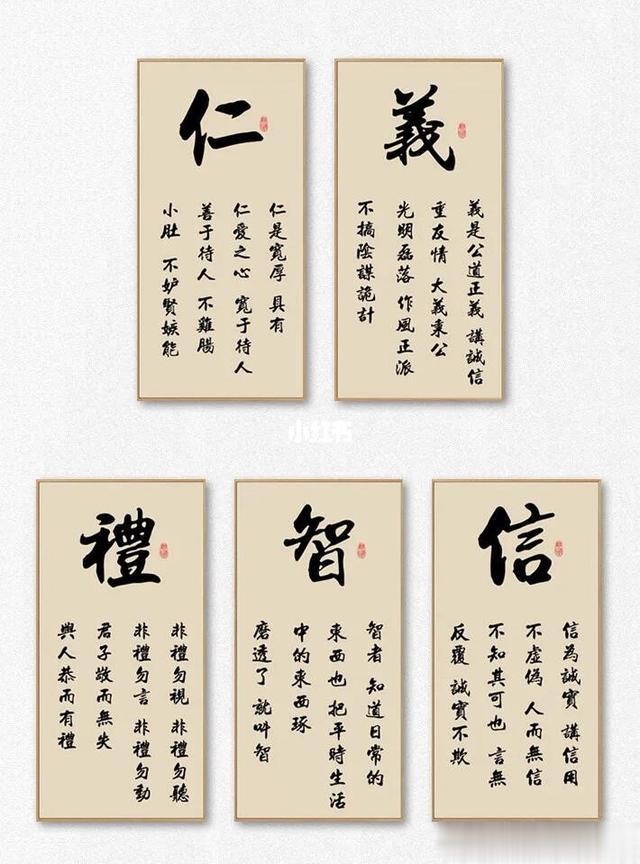 仁
仁是寬厚 具有
仁愛之心 寬于待人
善于待人 不雞腸
小肚 不妒賢嫉能
義
義是公道正義 講誠信
重友情 大義秉公
光明磊落 作風正派
不搞陰謀詭計
小红书
禮
非禮勿視 非禮勿聽
非禮勿言 非禮勿動
君子敬而無失
與人恭而有禮
智
智者 知道日常的
東西也 把平時生活
中的東西琢
磨透了 就叫智
信
信為誠實 講信用
不虛偽 人而無信
不知其可也 言無
反覆 誠實不欺